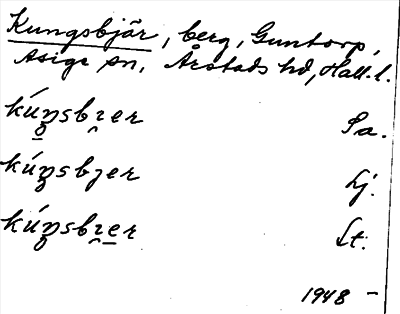 Kungsbjär, berg, Guntorp,
Asige sn, Årstads hd, Hall. l.
kúŋsbɪ̯er Sa.
kúŋsbȷer Lj.
kúŋsbɪ̯er Lt.
1948 –